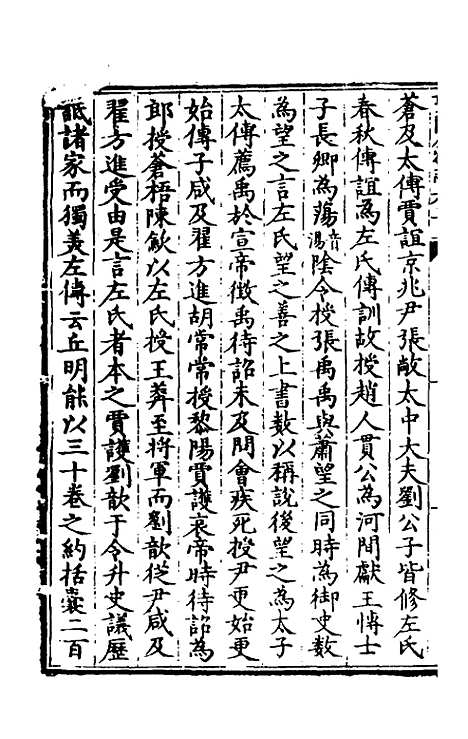 蒼及太傅賈誼京兆尹張敞太中大夫劉公子皆修左氏
春秋傳誼為左氏傳訓故授趙人貫公為河間獻王博士
子長卿為蕩音湯陰令授張禹禹與蕭望之同時為御史數
為望之言左氏望之善之上書數以稱說後望之為太子
太傅薦禹於宣帝徵禹待詔未及問會疾死授尹更始更
始傳子咸及翟方進胡常常授黎陽賈護哀帝時待詔為
郎授蒼梧陳歆以左氏授王莽至將軍而劉歆從尹咸及
翟方進受由是言左氏者本之賈護劉歆于令升史議歷
詆諸家而獨美左傳云丘明能以三十卷之約括囊二百